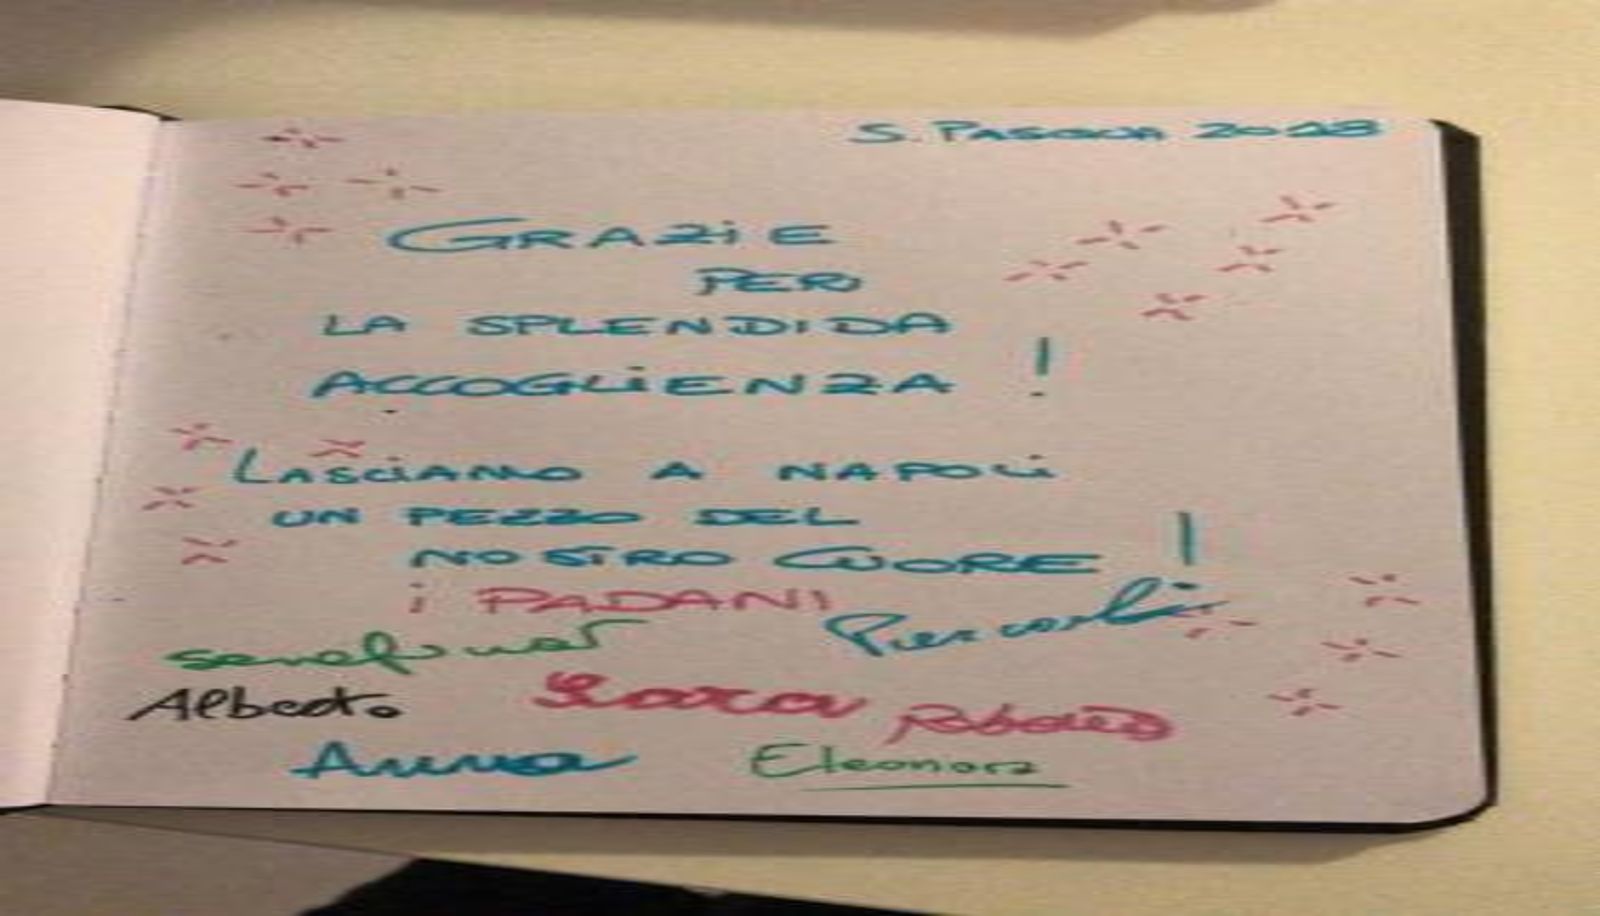 S. PASQUA 2018
GRAZiE
PER
LA SPLENDIDA
ACCOGLiENZA !
LASCiAMO A NAPOLi
UN PEZZO DEL
NOSTRO CUORE !
i PADANI
Alberto Sara Roberto
Anna Eleonora